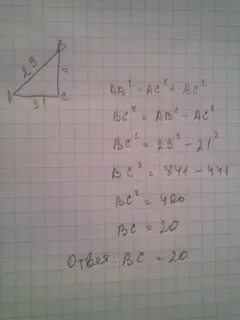 B
29
A
21
C
AB² = AC² + BC²
BC² = AB² - AC²
BC² = 29² - 21²
BC² = 841 - 441
BC² = 400
BC = 20
Ответ: BC = 20